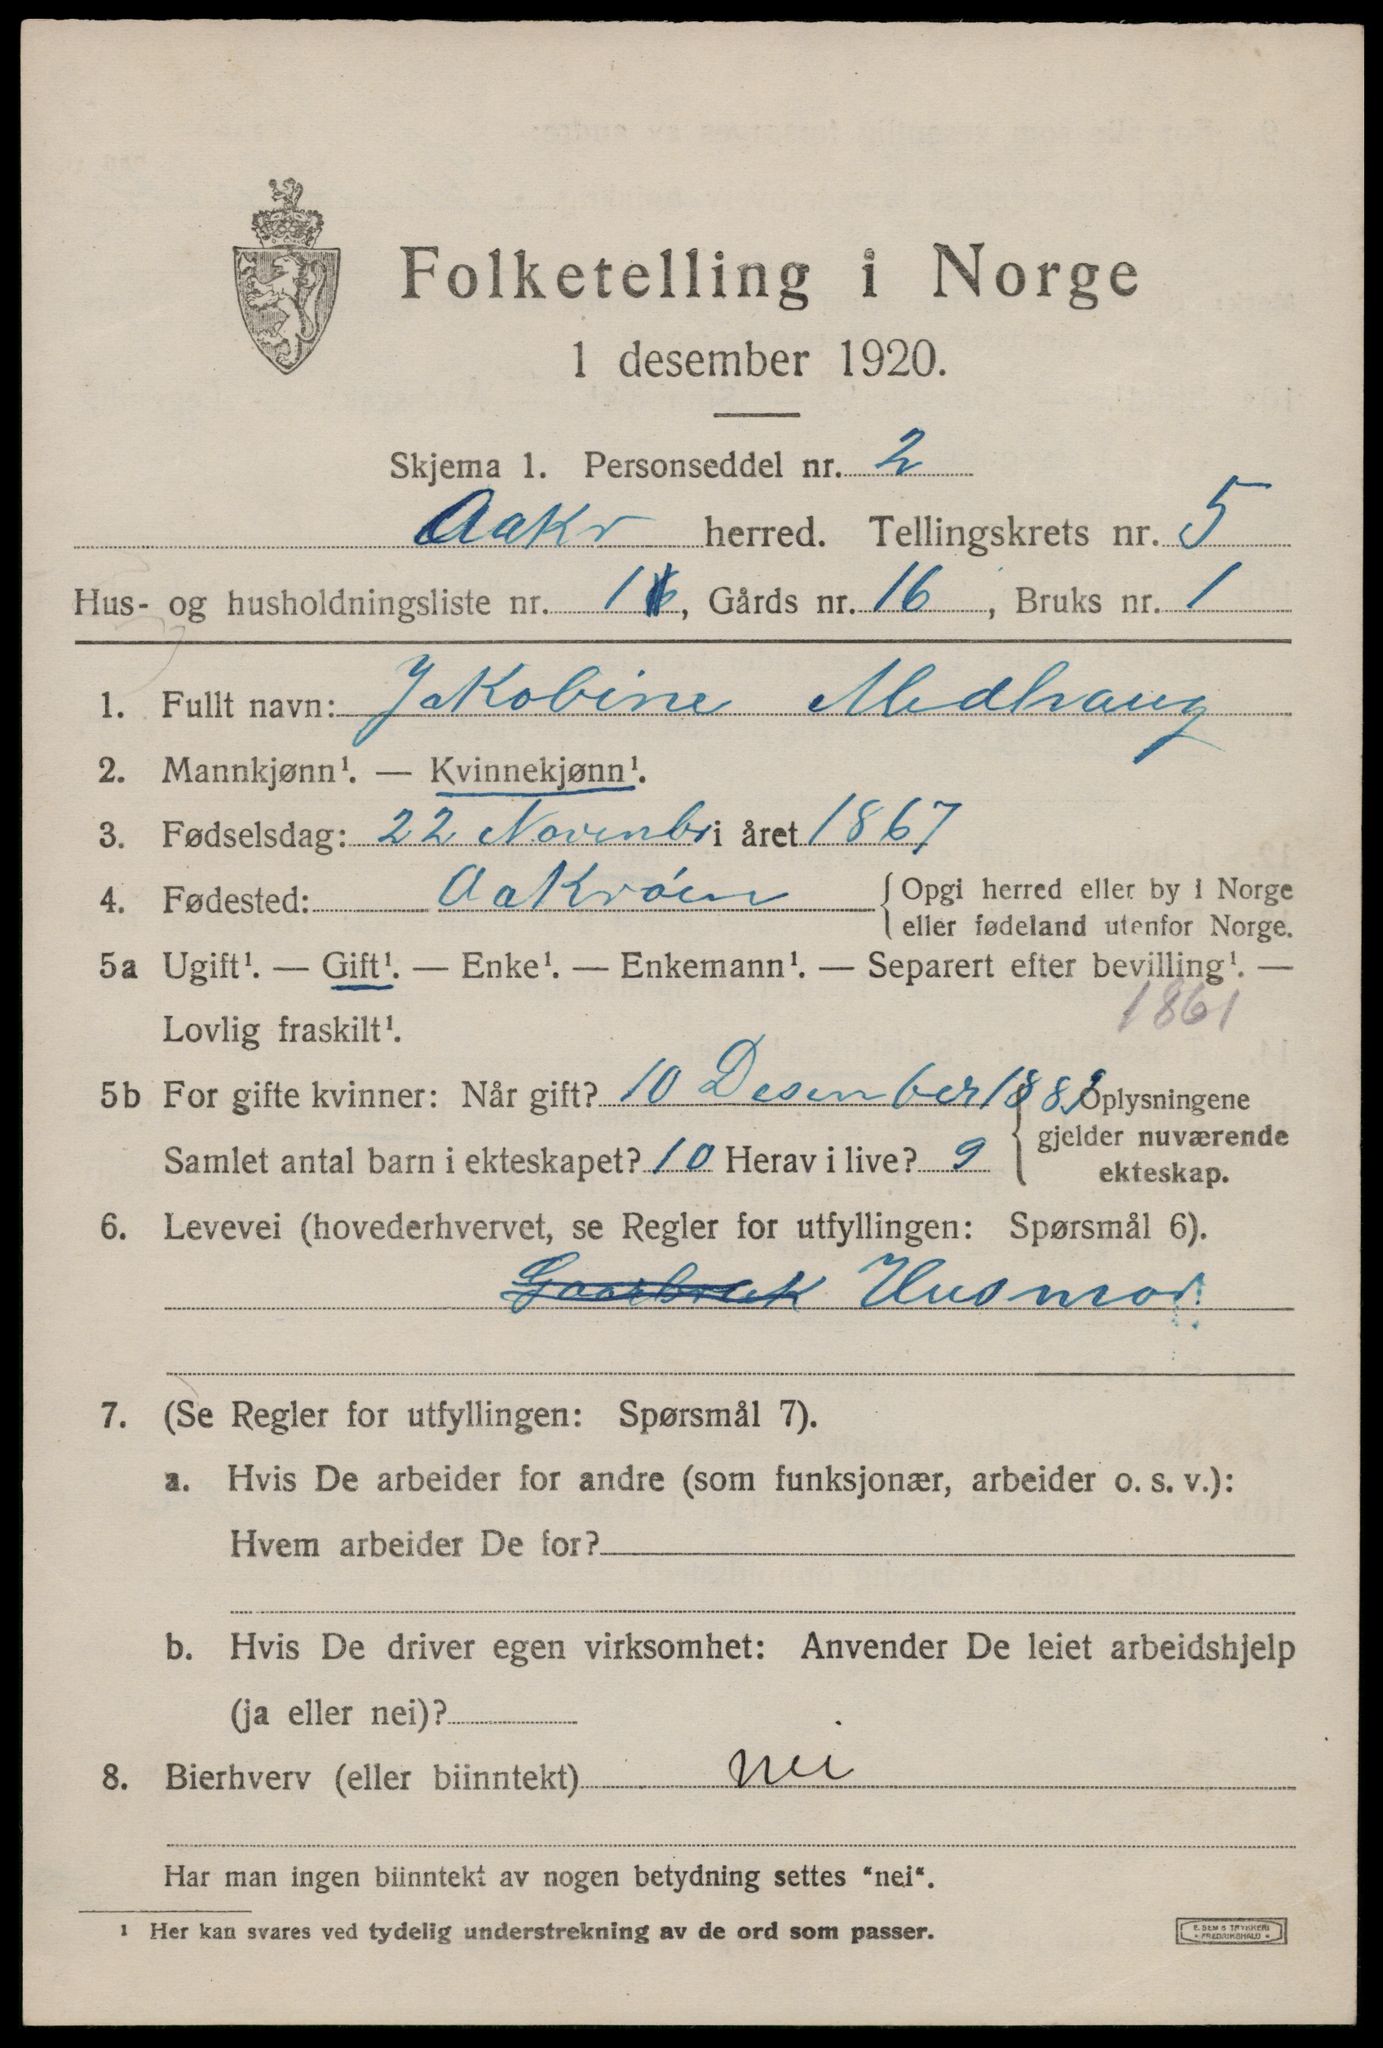 Folketelling i Norge
1 desember 1920.
Skjema 1. Personseddel nr. 2
Aakr herred. Tellingskrets nr. 5
Hus- og husholdningsliste nr. 16, Gårds nr. 16, Bruks nr. 1
1. Fullt navn: Jakobine Medhaug
2. Mannkjønn¹. — Kvinnekjønn¹.
3. Fødselsdag: 22 Novenbr i året 1867
4. Fødested: Opgi herred eller by i Norge
eller fødeland utenfor Norge.
5a Ugift¹. — Gift¹. — Enke¹. — Enkemann¹. — Separert efter bevilling¹. —
1861
Lovlig fraskilt¹.
5b For gifte kvinner: Når gift? 10 Desember Oplysningene
gjelder nuværende
Samlet antal barn i ekteskapet? 10 Herav i live? 9
ekteskap.
6. Levevei (hovederhvervet, se Regler for utfyllingen: Spørsmål 6).
Husmor
7. (Se Regler for utfyllingen: Spørsmål 7).
a. Hvis De arbeider for andre (som funksjonær, arbeider o. s. v.):
Hvem arbeider De for?
b. Hvis De driver egen virksomhet: Anvender De leiet arbeidshjelp
(ja eller nei)?
8. Bierhverv (eller biinntekt) nei
Har man ingen biinntekt av nogen betydning settes "nei".
¹ Her kan svares ved tydelig understrekning av de ord som passer.
E. SEM'S TRYKKERI
• FREDRIKSHALD •